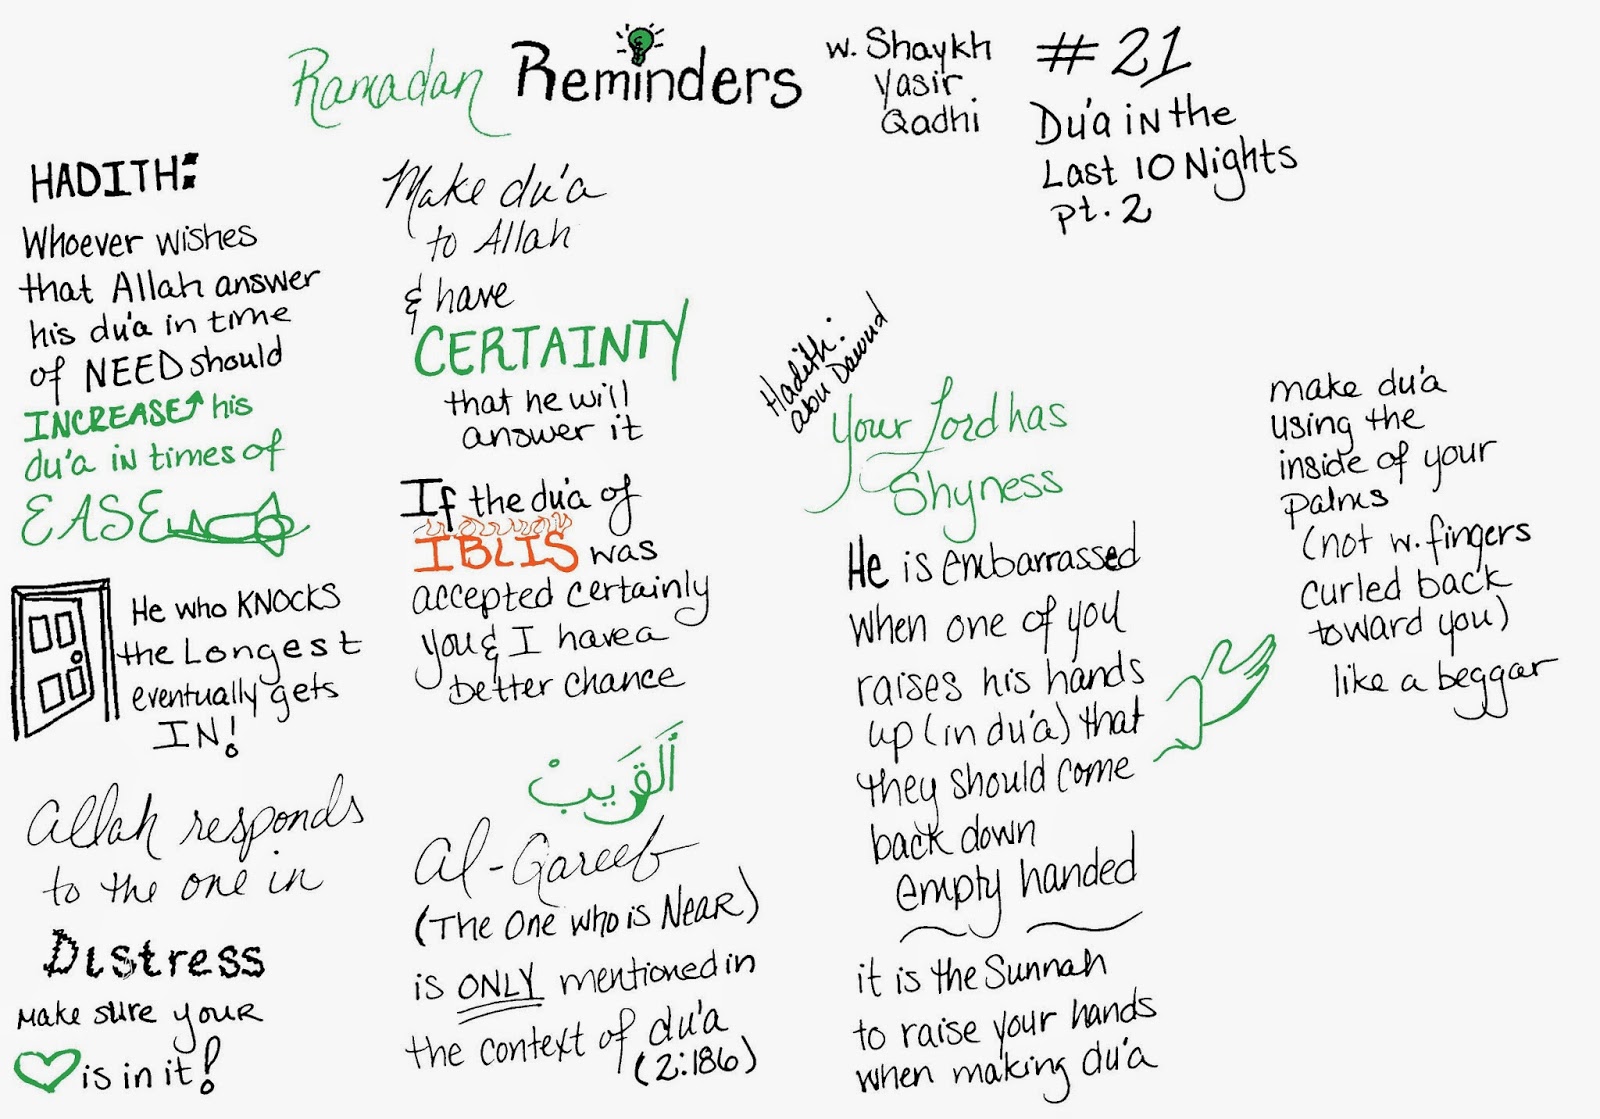 Ramadan Reminders
w. Shaykh
Yasir
Qadhi
# 21
Du'a in the
Last 10 Nights
pt. 2
HADITH:
Whoever wishes
that Allah answer
his du'a in time
of NEED should
INCREASE his
du'a in times of
EASE
He who KNOCKS
the Longest
eventually gets
IN!
Allah responds
to the one in
Distress
make sure your
is in it!
Make du'a
to Allah
& have
CERTAINTY
that he will
answer it
If the du'a of
IBLIS was
accepted certainly
you & I have a
better chance
ٱلْقَرِيبْ
Al-Qareeb
(The One who is Near)
is ONLY mentioned in
the context of du'a
(2:186)
Hadith:
abu Dawud
Your Lord has
Shyness
He is embarrassed
when one of you
raises his hands
up (in du'a) that
they should come
back down
empty handed
it is the Sunnah
to raise your hands
when making du'a
make du'a
using the
inside of your
palms
(not w. fingers
curled back
toward you)
like a beggar